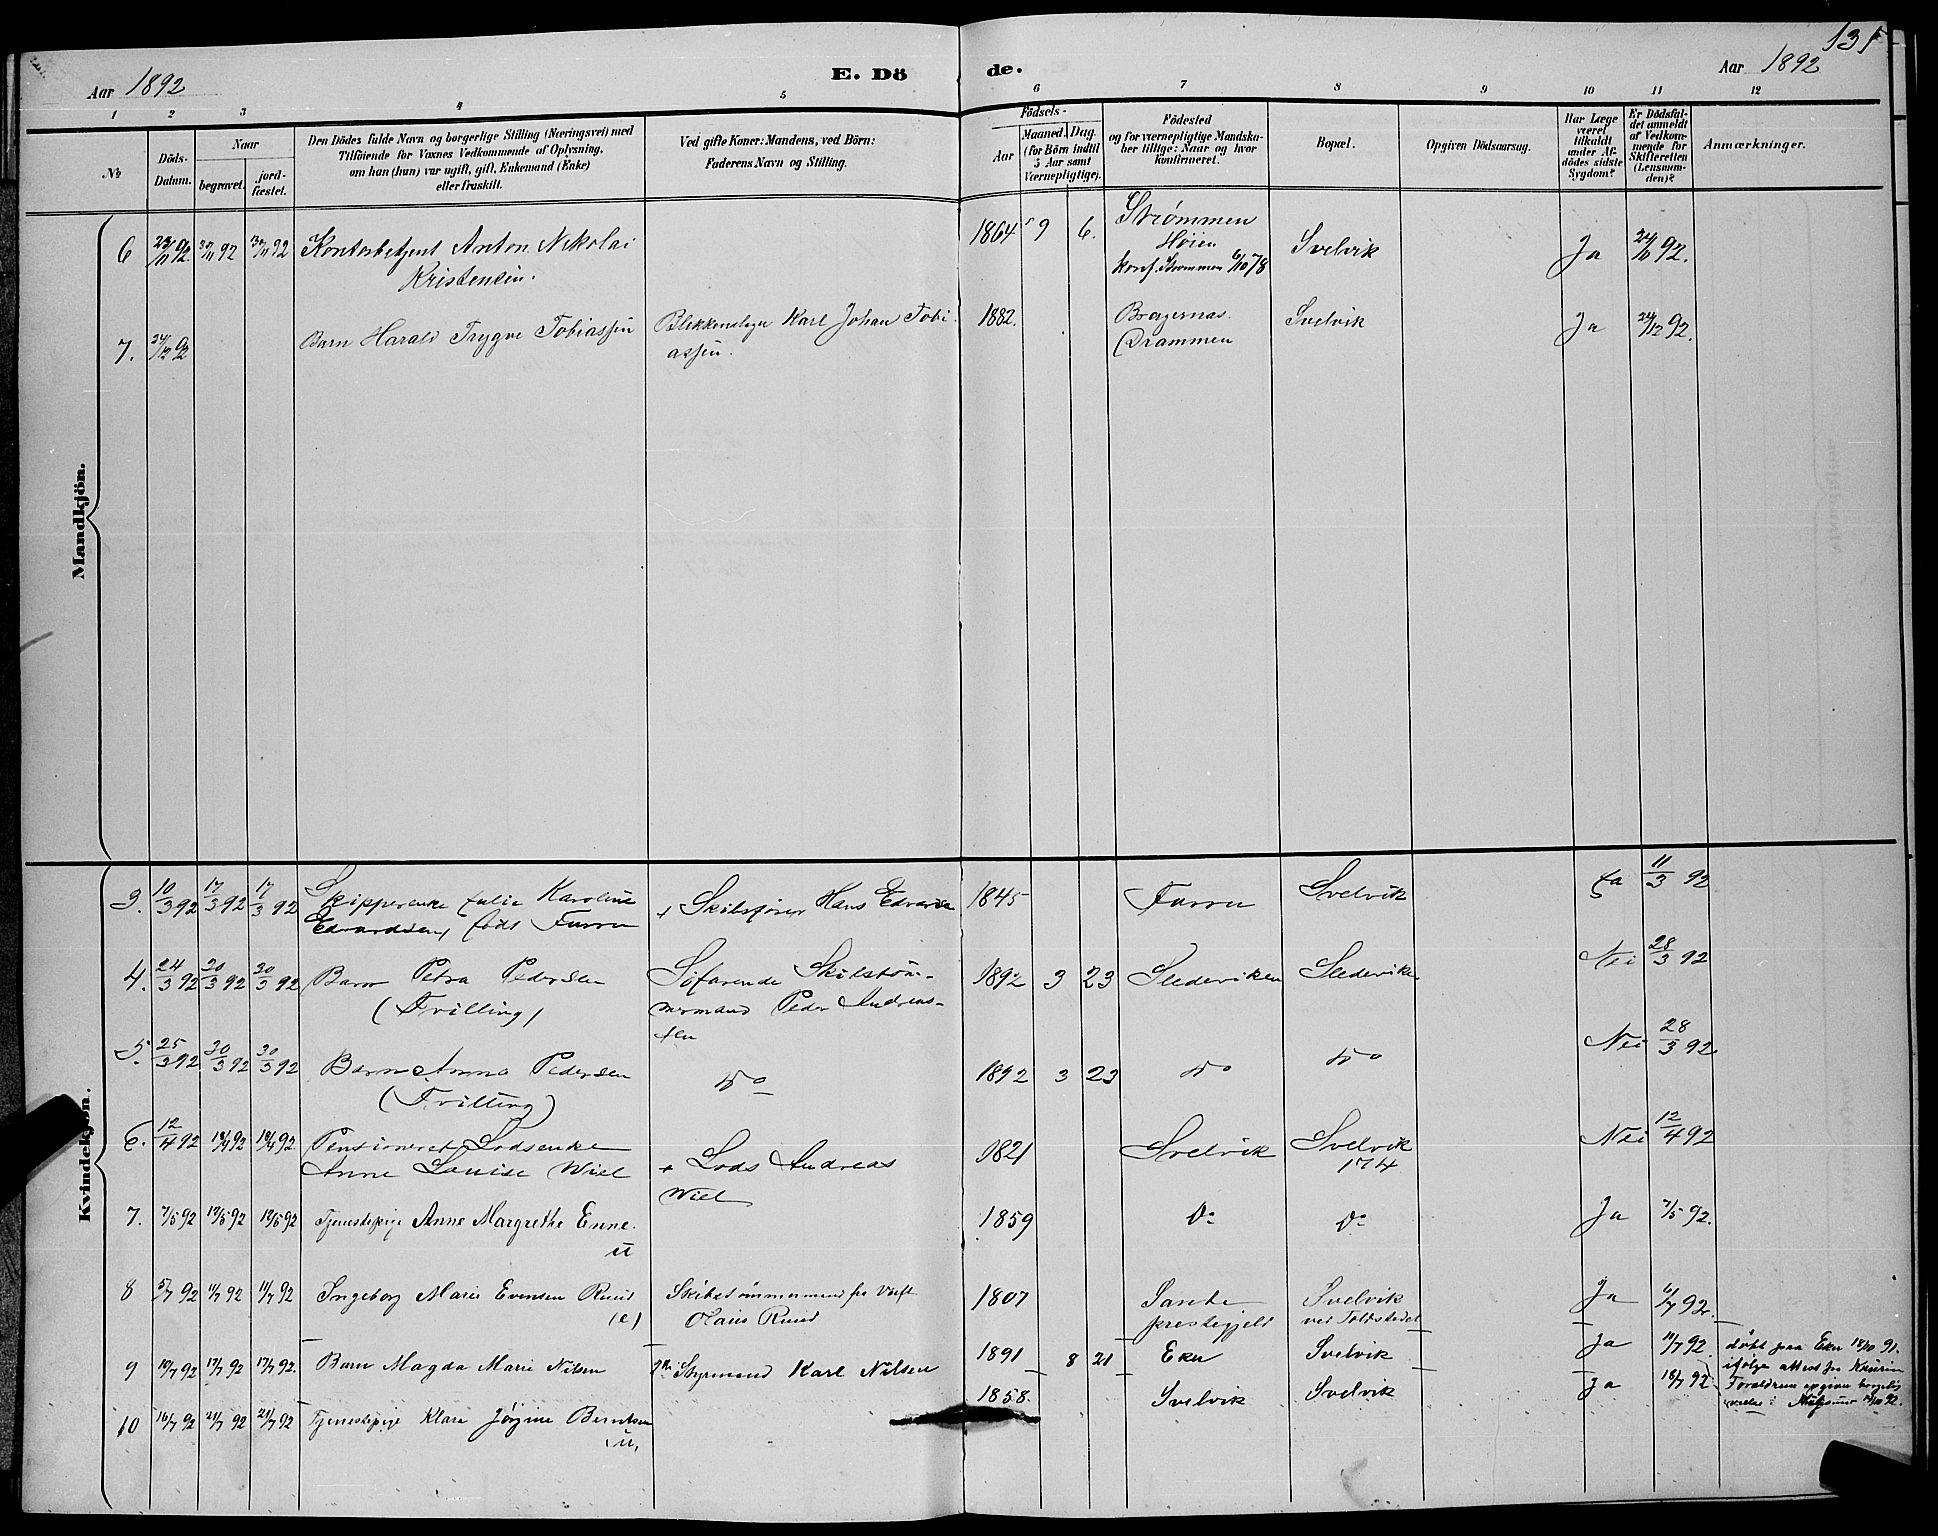 131
Aar 1892
E. Dö
de.
Aar 1892
1 2 3 4 5 6 7 8 9 10 11 12
No
Döds-
Datum.
Naar
begravet.
jord-
fæstet.
Den Dödes fulde Navn og borgerlige Stilling (Næringsvei) med
Tilföiende for Voxnes Vedkommende af Oplysning,
om han (hun) var ugift, gift, Enkemand (Enke)
eller fraskilt.
Ved gifte Koner: Mandens, ved Börn:
Faderens Navn og Stilling.
Födsels-
Aar
Maaned. Dag.
(for Börn indtil
5 Aar samt
Værnepligtige).
Födested
og for værnepligtige Mandska-
ber tillige: Naar og hvor
konfirmeret.
Bopæl.
Opgiven Dödsaarsag.
Har Læge
været
tilkaldt
under Af-
dödes sidste
Sygdom?
Er Dödsfal-
det anmeldt
af Vedkom-
mende for
Skifteretten
(Lensman-
den)?
Anmærkninger.
Mandkjön.
6 23/11 92 30/11 92 30/11 92 Kontorbetjent Anton Nikolai
Kristensen.
1864 9 6. Strømmen
Høien
konf. Strømmen 6/10 78
Svelvik Ja 24/11 92.
7. 24/12 92 Barn Harald Trygve Tobiassen
Blikkenslager Karl Johan Tobi-
assen.
1882. Bragernæs.
Drammen
Svelvik Ja 24/12 92.
Kvindekjön.
3. 10/3 92 17/3 92 17/3 92 Skipperenke Julie Karoline
Edvardsen, født Furru
+ Skibsfører Hans Edvardsen
1845 Furru Svelvik Ja 11/3 92
4. 24/3 92 30/3 92 30/3 92 Barn Petra Pedersen
(Trilling)
Søfarende Skibstøm-
mermand Peder Andreas-
sen
1892 3 23 Slederviken Sledevik Nei 28/3 92
5. 25/3 92 30/3 92 30/3 92 Barn Anna Pedersen
(Trilling)
do 1892 3 23 do do Nei 28/3 92.
6. 12/4 92 18/4 92 18/4 92 Pensioneret Lodsenke
Anne Louise Wiel
+ Lods Andreas
Wiel
1821 Svelvik Svelvik
174
Nei 12/4 92
7. 7/5 92 12/5 92 12/5 92 Tjenestepige Anne Margrethe Enne.
u
1859 do do Ja 7/5 92.
8 5/7 92 11/7 92 11/7 92 Ingeborg Marie Evensen Ruud
(e)
Skibstømmermand fra Værft
Olaus Ruud
1807 Sande
prestegjeld
Svelvik
ved Toldstedet
Ja 6/7 92.
9 10/7 92 17/7 92 17/7 92. Barn Magda Marie Nilsen
Styrmand Karl Nilsen
1891 8 21 Eker Svelvik Ja 11/7 92.
døbt paa Eker 18/10 91.
ifølge attest fra
Forældrene
10 16/7 92 21/7 92 21/7 92 Tjenestepige Klara Jørgine Berntsen
u.
1858. Svelvik Svelvik Ja 18/7 92